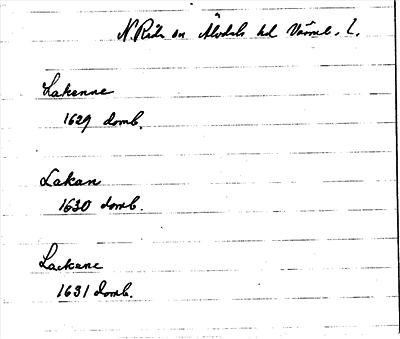 N Råda sn Älvdals hd Värml. l.
Lakenne
1629 domb.
Lakan
1630 domb.
Lackene
1631 domb.